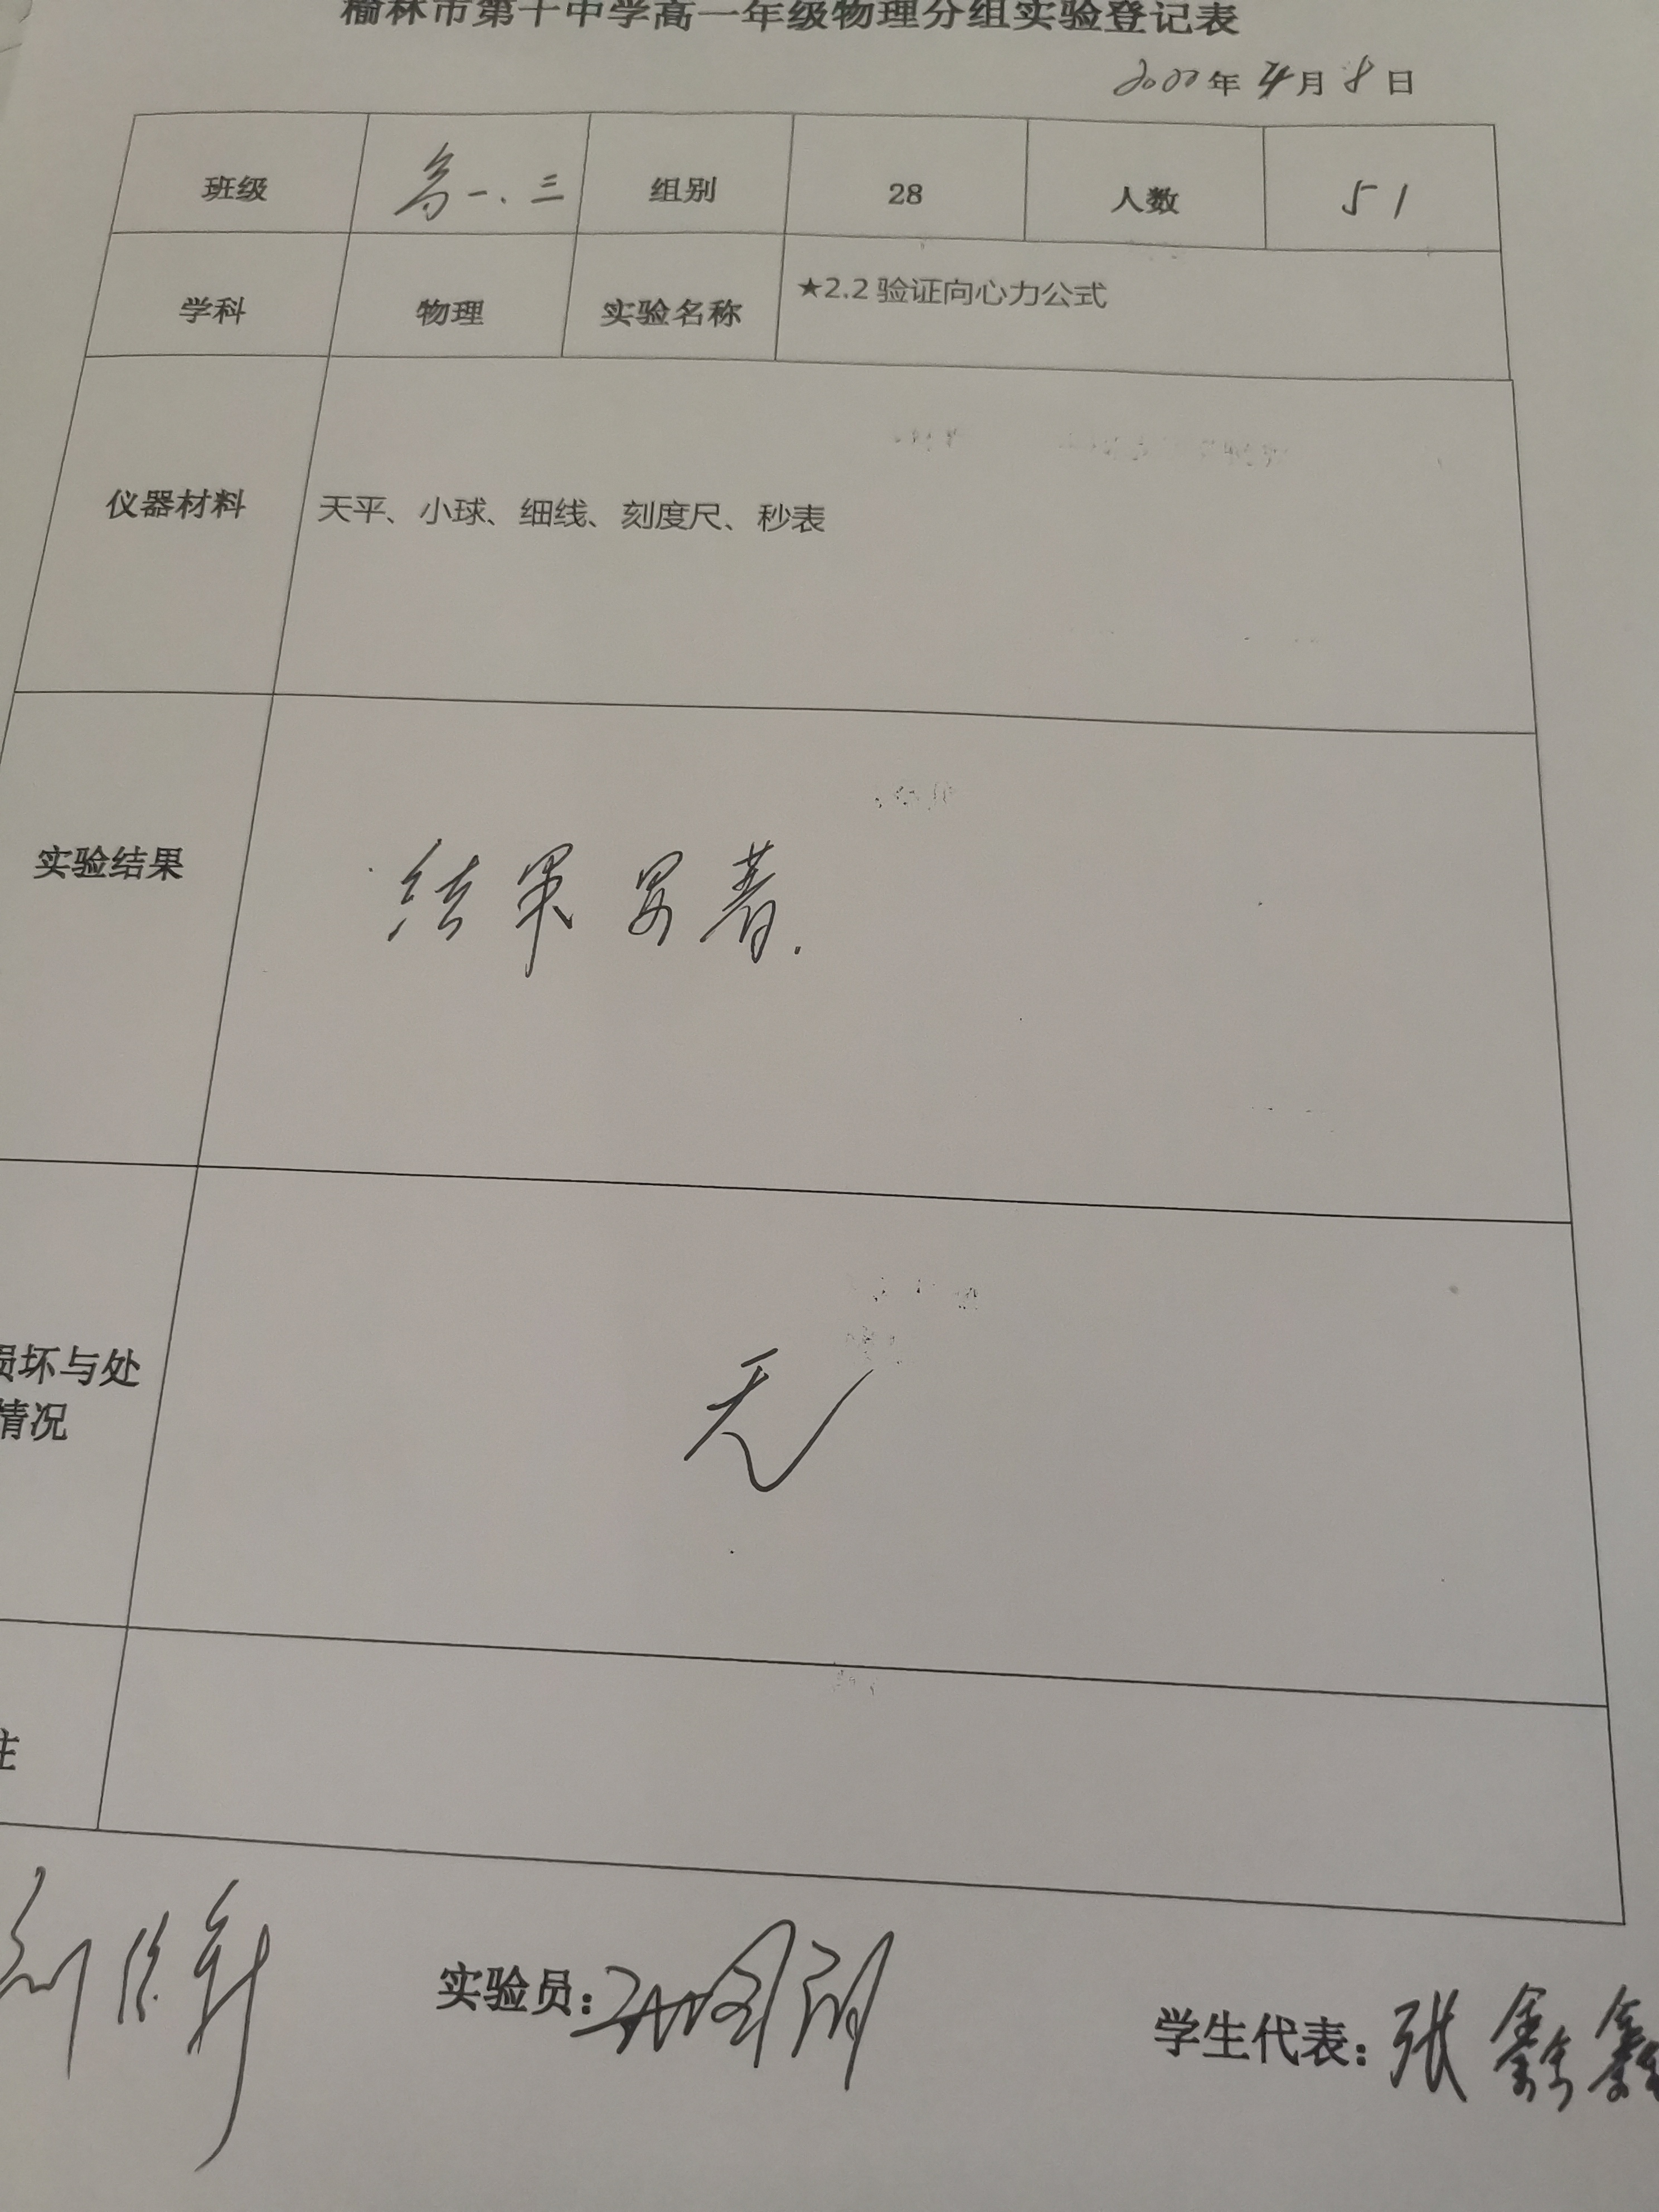 榆林市第十中学高一年级物理分组实验登记表
年4月8日
班级 高一.三 组别 28 人数 51
学科 物理 实验名称 ★2.2验证向心力公式
仪器材料 天平、小球、细线、刻度尺、秒表
实验结果 结果显著.
损坏与处
情况
无
注
实验员:
学生代表:张鑫鑫